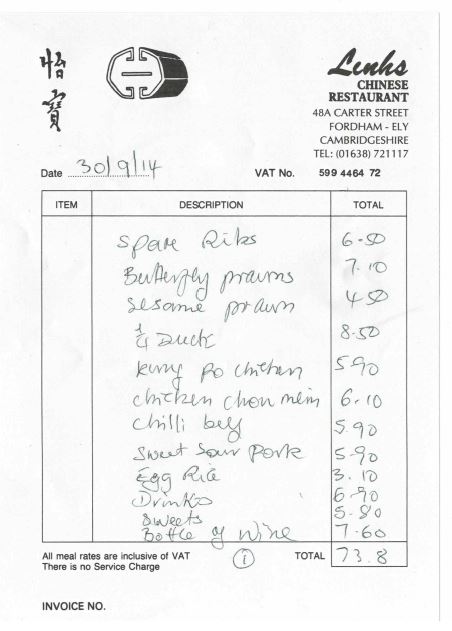 怡寶
Lenhs
CHINESE
RESTAURANT
48A CARTER STREET
FORDHAM - ELY
CAMBRIDGESHIRE
TEL: (01638) 721117
Date 30/9/14 VAT No. 599 4464 72
ITEM DESCRIPTION TOTAL
Spare Ribs 6-50
Butterfly prawns 7.10
Sesame prawn 4 50
1/4 Duck 8-50
kung po chicken 5-90
chicken chow mein 6-10
chilli beef 5.90
Sweet Sour Pork 5-90
Egg Rice 3.10
Drinks 6-90
Sweets 5-80
Bottle of wine 7-60
All meal rates are inclusive of VAT TOTAL 73.8
There is no Service Charge
INVOICE NO.